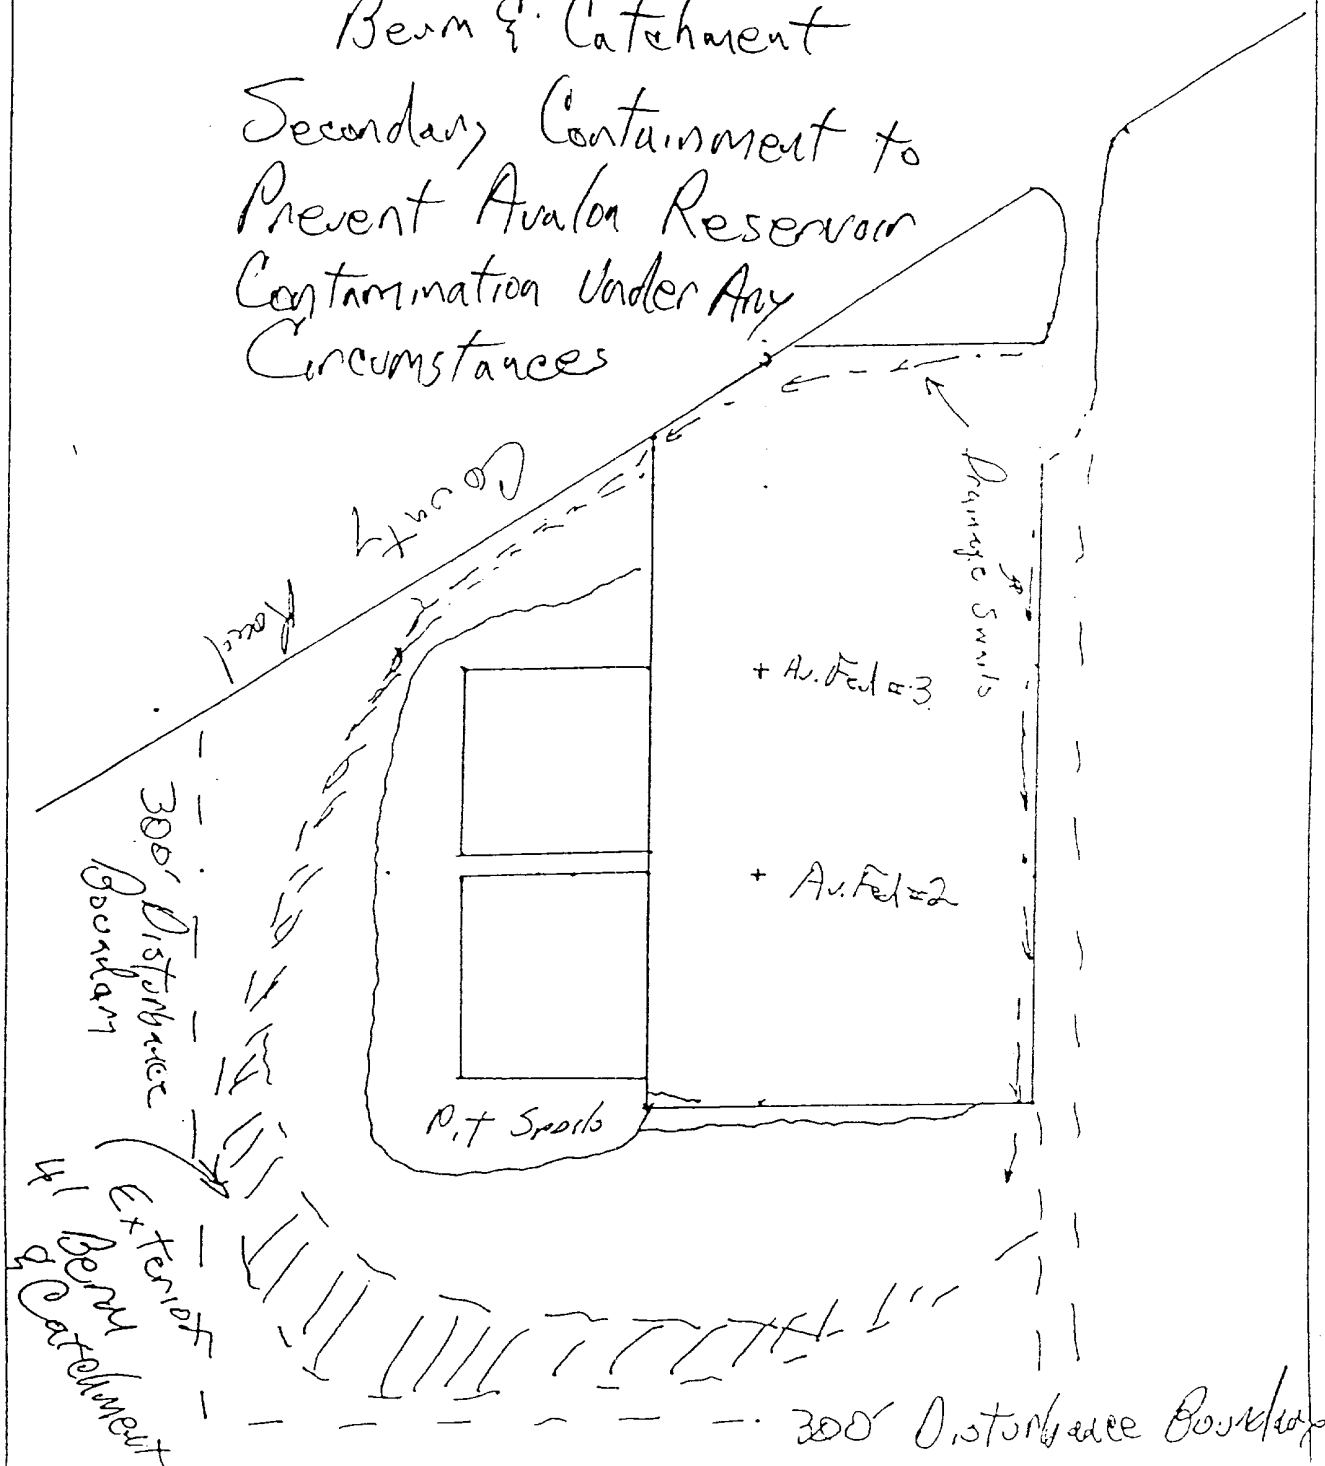 Berm & Catchment
Secondary Containment to
Prevent Avalon Reservoir
Contamination Under Any
Circumstances
County
Road
Drainage Swals
+ Av. Fed #3
+ Av. Fed #2
300' Disturbance
Boundary
Pit Spoils
Exterior
4' Berm
& Catchment
300' Disturbance Boundary